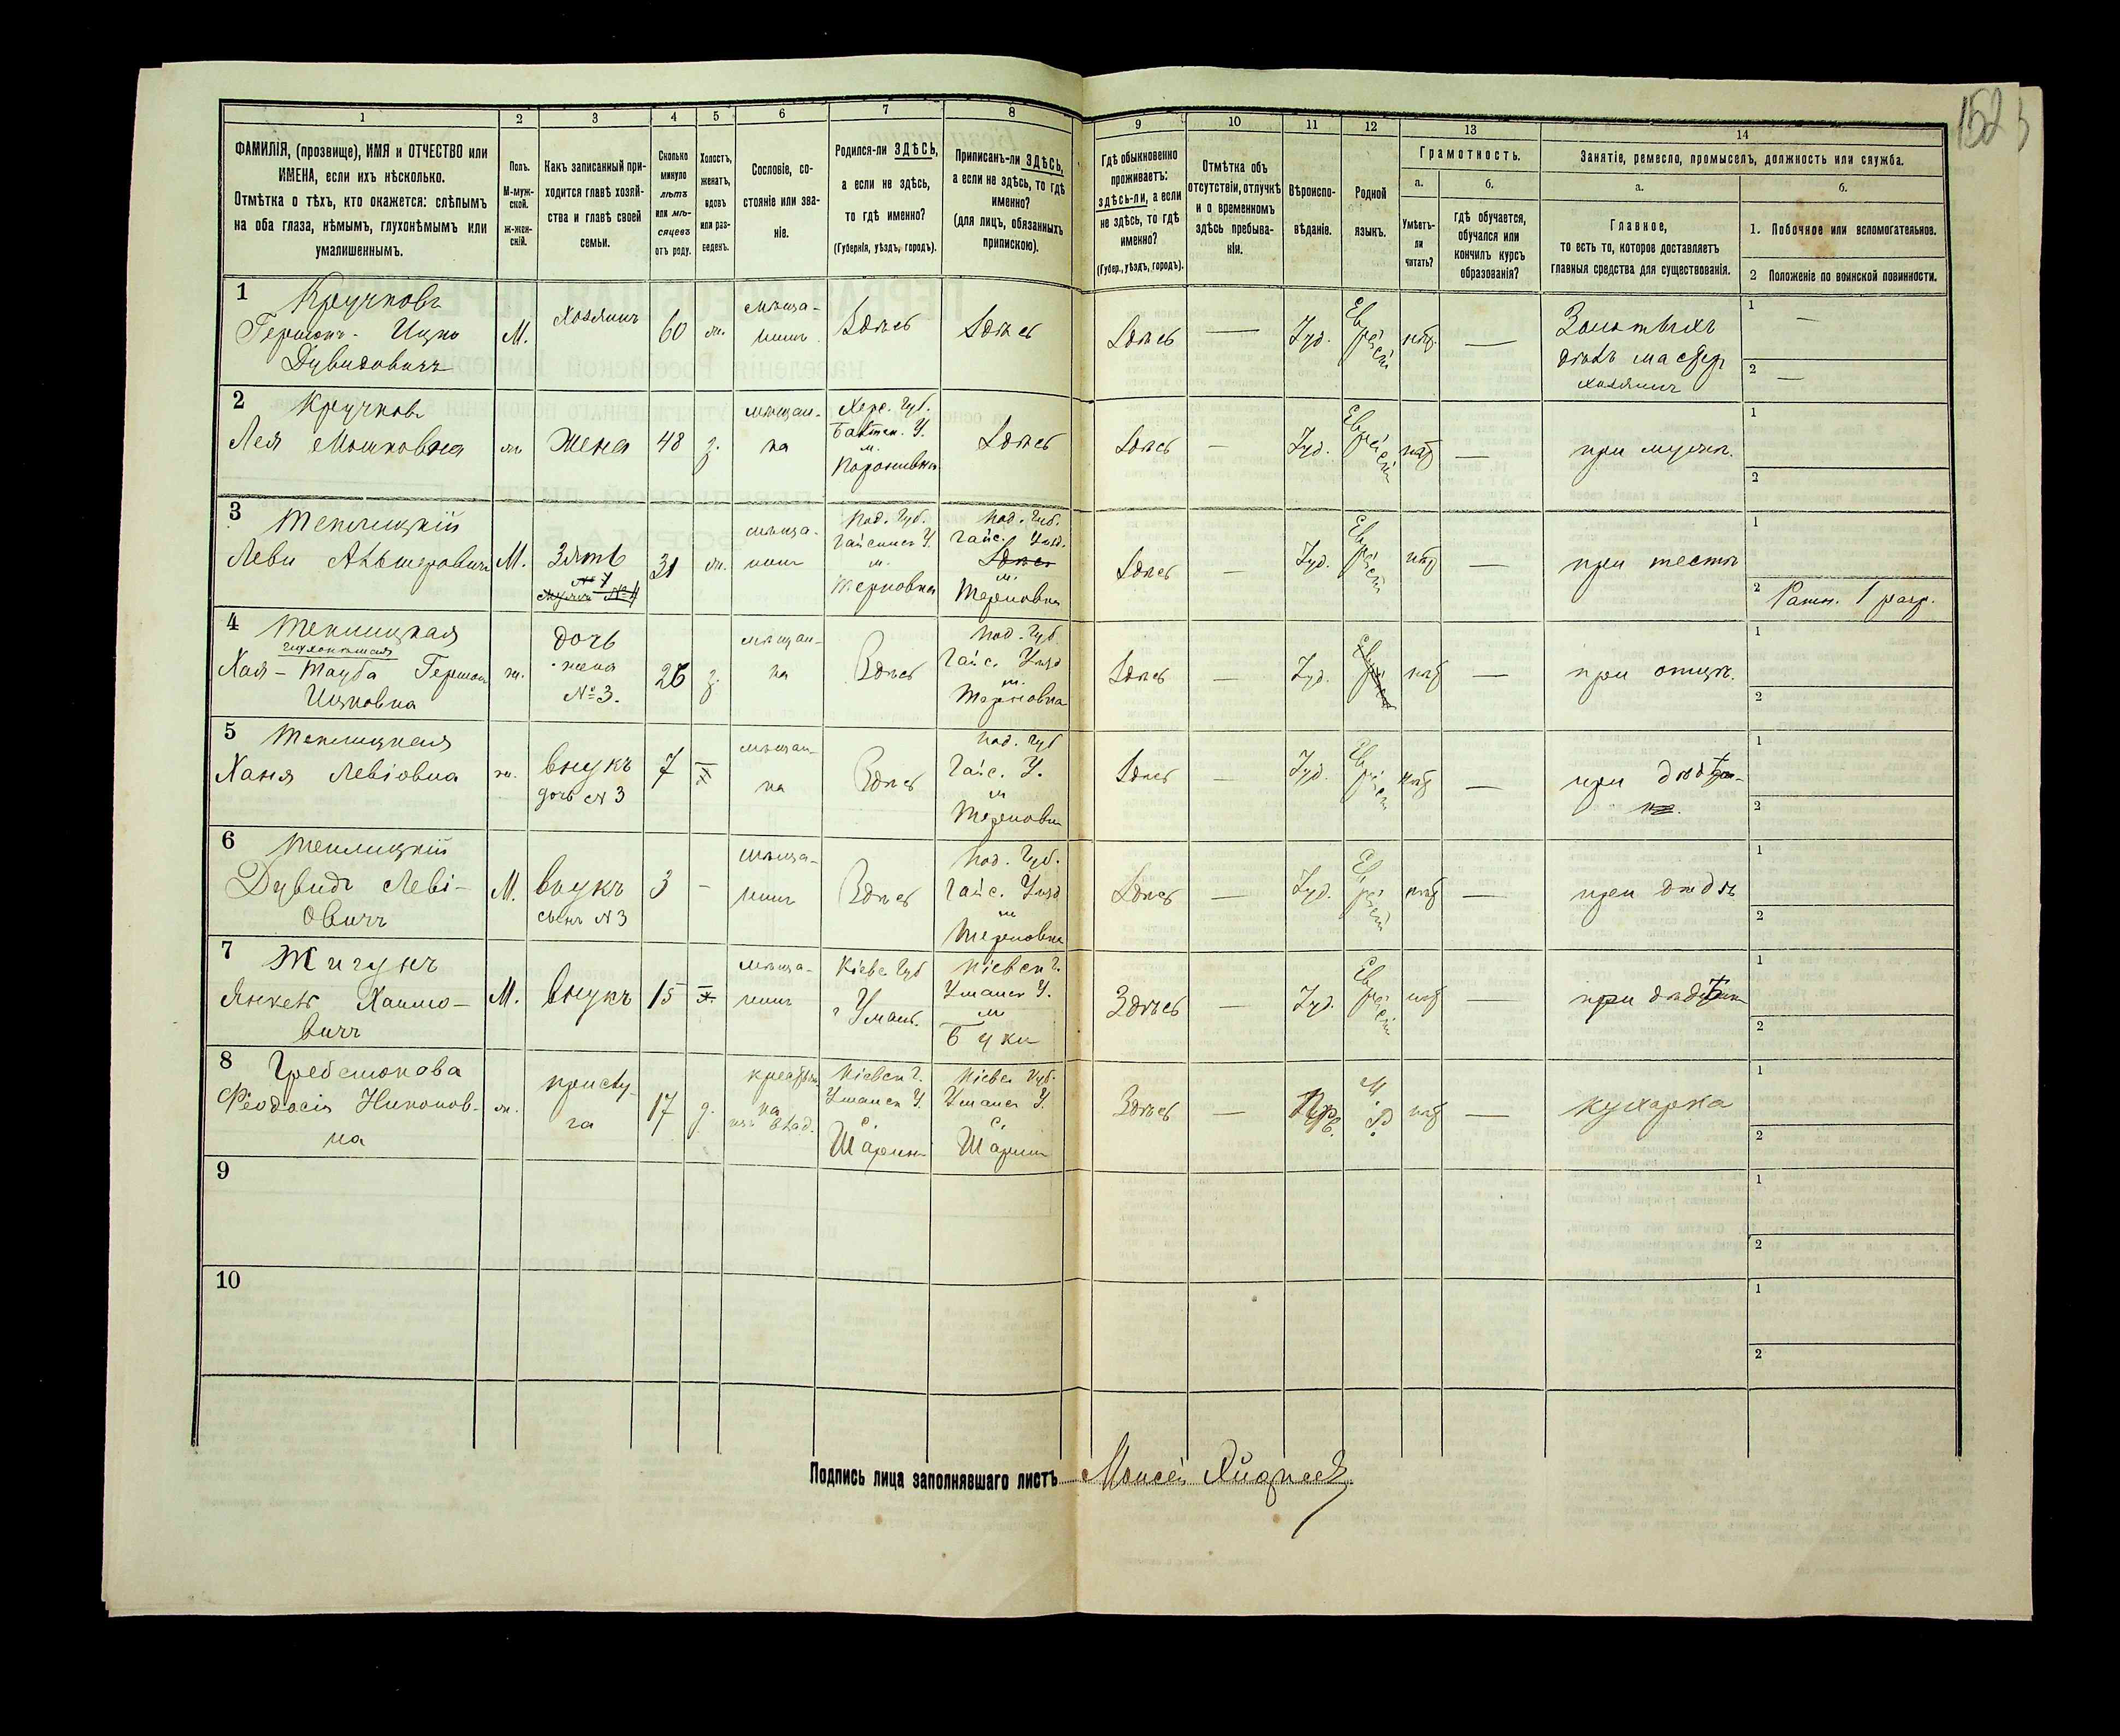 152
1 2 3 4 5 6 7 8 9 10 11 12 13 14
ФАМИЛІЯ, (прозвище), ИМЯ и ОТЧЕСТВО или
ИМЕНА, если ихъ нѣсколько.
Отмѣтка о тѣхъ, кто окажется: слѣпымъ
на оба глаза, нѣмымъ, глухонѣмымъ или
умалишеннымъ.
Полъ.
М-муж-
ской.
Ж-жен-
скій.
Какъ записанный при-
ходится главѣ хозяй-
ства и главѣ своей
семьи.
Сколько
минуло
лѣтъ
или мѣ-
сяцевъ
отъ роду.
Холостъ,
женатъ,
вдовъ
или раз-
веденъ.
Сословіе, со-
стояніе или зва-
ніе.
Родился-ли ЗДѢСЬ,
а если не здѣсь,
то гдѣ именно?
(Губернія, уѣздъ, городъ).
Приписанъ-ли ЗДѢСЬ,
а если не здѣсь, то гдѣ
именно?
(для лицъ, обязанныхъ
припискою).
Гдѣ обыкновенно
проживаетъ:
здѣсь-ли, а если
не здѣсь, то гдѣ
именно?
(Губер., уѣздъ, городъ).
Отмѣтка объ
отсутствіи, отлучкѣ
и о временномъ
здѣсь пребыва-
ніи.
Вѣроиспо-
вѣданіе.
Родной
языкъ.
Грамотность.
а.
Умѣетъ-
ли
читать?
б.
гдѣ обучается,
обучался или
кончилъ курсъ
образованія?
Занятіе, ремесло, промыселъ, должность или служба.
а.
Главное,
то есть то, которое доставляетъ
главныя средства для существованія.
б.
1. Побочное или вспомогательное.
2 Положеніе по воинской повинности.
1 Кручковъ
Гершонъ-Ицко
Дувидовичъ
М.
Хозяинъ
60
ж.
мѣща-
нинъ
Здѣсь
Здѣсь
Здѣсь
—
Іуд.
Еврейс
нѣт
—
Золотыхъ
дѣлъ мастер
хозяинъ
1 —
2 —
2 Кручкова
Лея Мошковна
ж
Жена
48
з.
мѣщан-
ка
Хере. Губ.
У.
м.
Здѣсь
Здѣсь
—
Іуд.
Еврейс
нѣт
—
при мужѣ.
1
2
3 Теплицкій
Леви Альтеровичъ
М.
Зять
31
ж.
мѣща-
нинъ
Под. Губ.
Гайсинск У.
м.
Терновка
Под. Губ.
Гайс. Уѣзд.
Здѣсь
м.
Терновка
Здѣсь
—
Іуд.
Еврейс
нѣт
—
при тестѣ
1
2 Ратн. 1 разр.
4 Теплицкая
глухонѣмая
Хая-Тауба Гершон
Ицковна
ж.
дочь
жена
№ 3.
26
з.
мѣщан-
ка
Здѣсь
Под. Губ
Гайс. Уѣзд
м.
Терновка
Здѣсь
—
Іуд.
нѣт
—
при отцѣ.
1
2
5 Теплицкая
Ханя Левіовна
ж.
внукъ
дочь № 3
7
мѣщан-
ка
Здѣсь
Под. Губ
Гайс. У.
м
Терновка
Здѣсь
—
Іуд.
Еврейс
нѣт
—
при
1
2
6 Теплицкій
Дувидъ Леві-
овичъ
М.
внукъ
сынъ № 3
3
—
мѣща-
нинъ
Здѣсь
Под. Губ.
Гайс. Уѣзд
м
Терновка
Здѣсь
—
Іуд.
Еврейс
нѣт
—
при дѣдѣ
1
2
7 Жигукъ
Янкель Хаимо-
вичъ
М.
внукъ
15
х.
мѣща-
нинъ
Кіевс Губ
г Умань.
Кіевск г.
Уманск У.
м
Буки
Здѣсь
—
Іуд.
Еврейс
нѣт
—
при
1
2
8 Гребенюкова
Феодосія Никонов-
на
ж.
прислу
га
17
д.
крестьян
ка
Кіевск г.
Уманск У.
с.
Шарин
Кіевск Губ.
Уманск У.
с.
Шарин
Здѣсь
—
Прв.
М.
Р.
нѣт
—
кухарка
1
2
9
1
2
10
1
2
Подпись лица заполнявшаго листъ Моисей